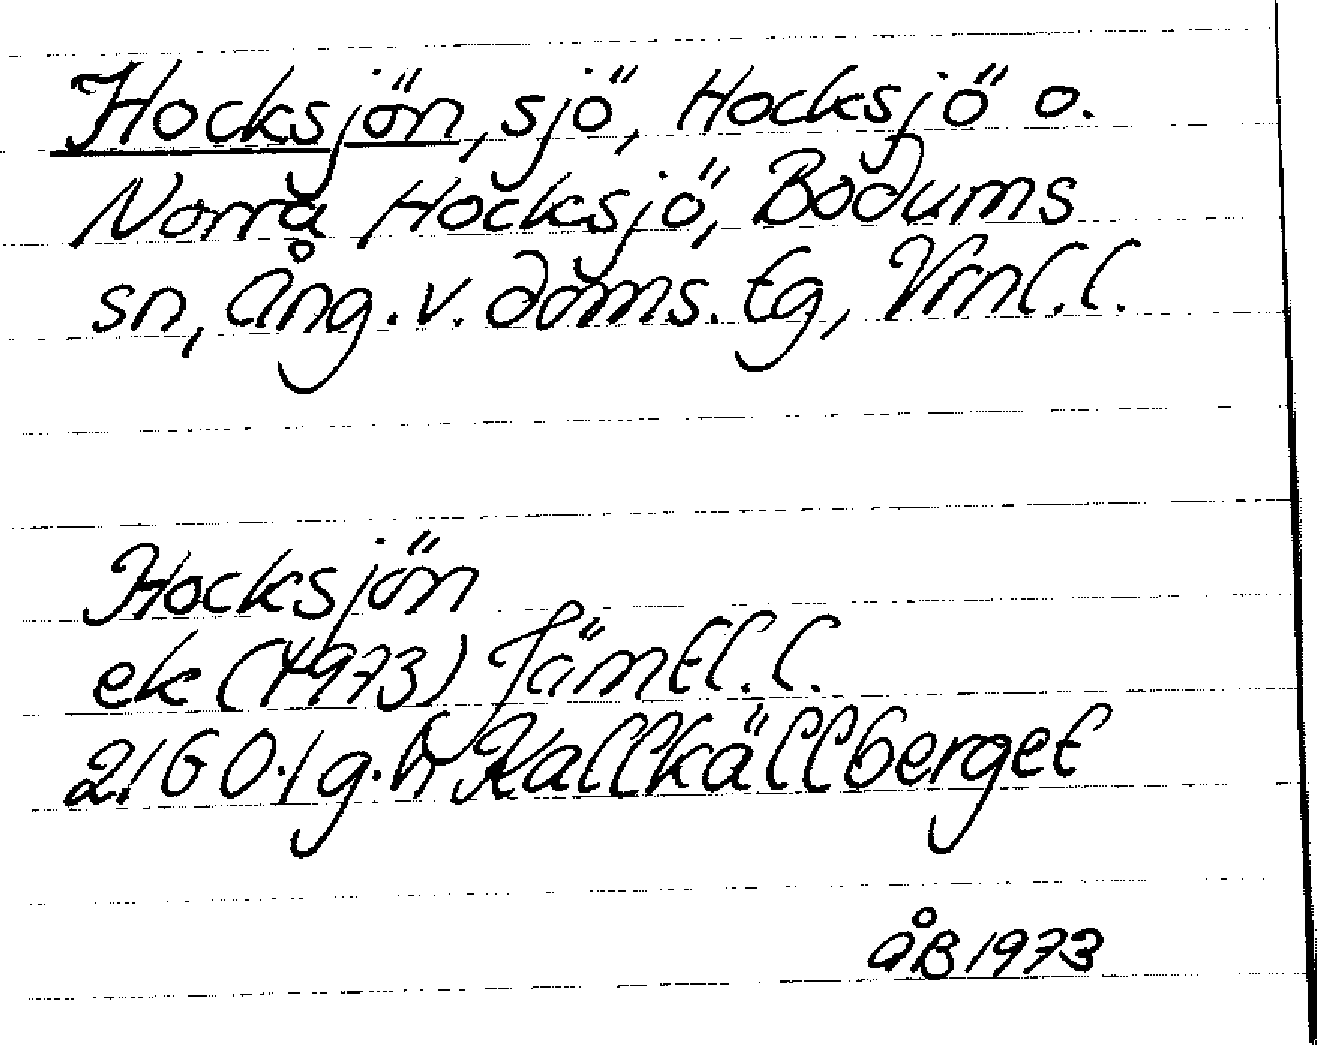 Hocksjön, sjö, Hocksjö o.
Norra Hocksjö, Bodums
sn, Ång. v. doms. tg, Vrnl. l.
Hocksjön
ek (1973) Jämtl. l.
21G 0-1 g. h Kallkällberget
åB 1973